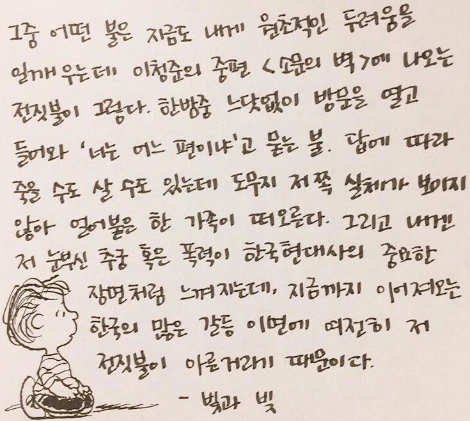 그중 어떤 불은 지금도 내게 원초적인 두려움을
일깨우는데 이청준의 중편 <소문의 벽>에 나오는
전짓불이 그렇다. 한밤중 느닷없이 방문을 열고
들어와 '너는 어느 편이냐'고 묻는 불. 답에 따라
죽을 수도 살 수도 있는데 도무지 저쪽 실체가 보이지
않아 얼어붙은 한 가족이 떠오른다. 그리고 내겐
저 눈부신 추궁 혹은 폭력이 한국현대사의 중요한
장면처럼 느껴지는데, 지금까지 이어져오는
한국의 많은 갈등 이면에 여전히 저
전짓불이 아른거라기 때문이다.
- 빛과 빚